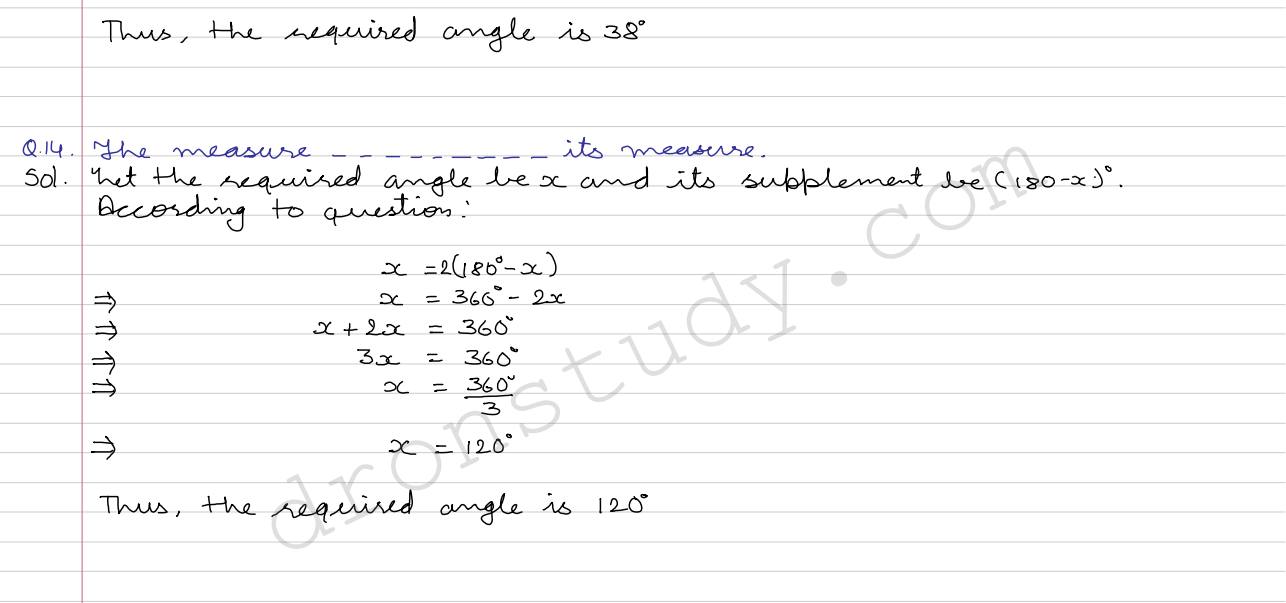 Thus, the required angle is 38°
Q.14. The measure _ _ _ _ _ _ _ _ _ its measure.
Sol. Let the required angle be x and its supplement be (180-x)°.
According to question:
x = 2(180°-x)
⇒ x = 360° - 2x
⇒ x + 2x = 360°
⇒ 3x = 360°
⇒ x = 360°/3
⇒ x = 120°
Thus, the required angle is 120°
dronstudy.com